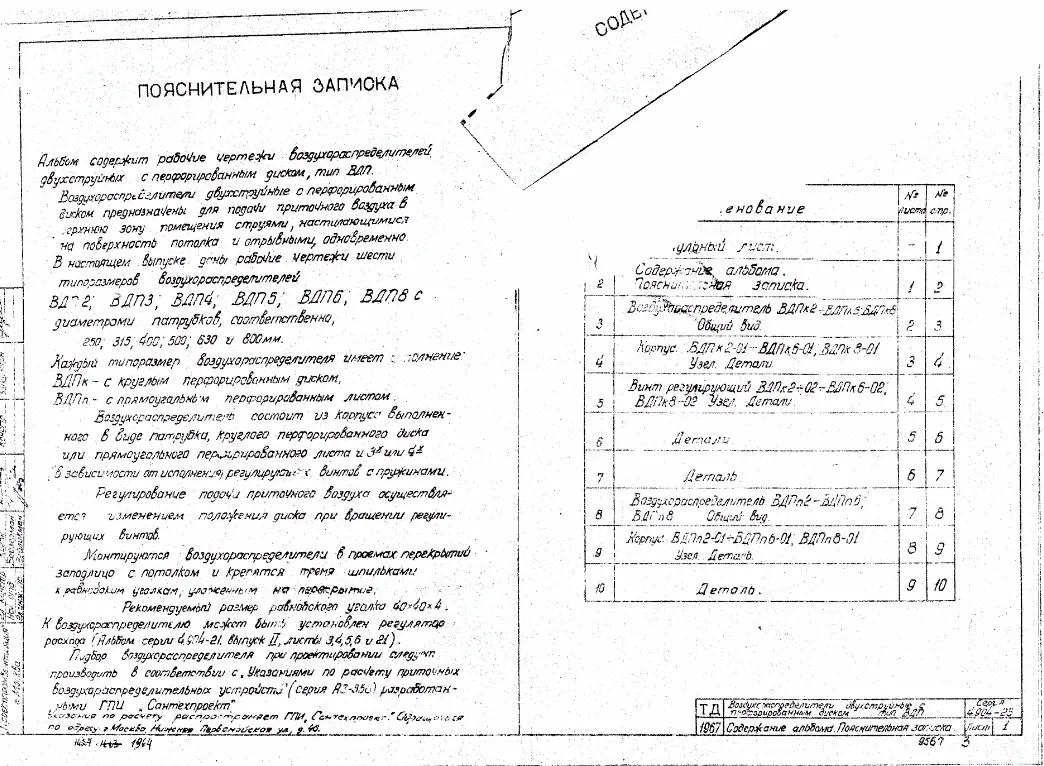 ПОЯСНИТЕЛЬНАЯ ЗАПИСКА
Альбом содержит рабочие чертежи воздухораспределителей
двухструйных с перфорированным диском, тип ВДП.
Воздухораспределители двухструйные с перфорированным
диском предназначены для подачи приточного воздуха в
.ерхнюю зону помещения струями, настилающимися
на поверхность потолка и отрывными, одновременно.
В настоящем выпуске даны рабочие чертежи шести
типоразмеров воздухораспределителей
ВДП2, ВДП3, ВДП4, ВДП5, ВДП6, ВДП8 с
диаметрами патрубков, соответственно,
250; 315; 400; 500; 630 и 800мм.
Каждый типоразмер воздухораспределителя имеет
ВДПк - с круглым перфорированным диском,
ВДПп - с прямоугольным перфорированным листом.
Воздухораспределитель состоит из корпуса выполнен-
ного в виде патрубка, круглого перфорированного диска
или прямоугольного перфорированного листа и 3х или 4х
(в зависимости от исполнения) регулирующих винтов с пружинами.
Регулирование подачи приточного воздуха осуществля-
ется изменением положения диска при вращении регули-
рующих винтов.
Монтируются воздухораспределители в проемах перекрытий
заподлицо с потолком и крепятся тремя шпильками
к равнобоким уголкам, уложенным на перекрытие.
Рекомендуемый размер равнобокого уголка 40×40×4.
К воздухораспределителю может быть установлен регулятор
расхода (Альбом серии 4.904-21. Выпуск II, листы 3,4,5,6 и 21).
Подбор воздухораспределителя при проектировании следует
производить в соответствии с „Указаниями по расчету приточных
воздухораспределительных устройств" (серия А3-356) разработан-
ными ГПИ „Сантехпроект"
Указания по расчету распространяет ГПИ „Сантехпроект." Обращаться
по адресу: г.Москва, Нижняя Первомайская ул, д.40.
1964
СОДЕ
.енование
№ листа
№ стр.
.ульный лист.
– 1
2 Содержание альбома.
Пояснительная записка. 1 2
3 Воздухораспределитель ВДПк2÷ВДПк5;ВДПк8
Общий вид. 2 3
4 Корпус. ВДПк2-01÷ВДПк6-01, ВДПк8-01
Узел. Детали. 3 4
5 Винт регулирующий ВДПк2-02÷ВДПк6-02;
ВДПк8-02 Узел. Детали. 4 5
6 Детали 5 6
7 Деталь 6 7
8 Воздухораспределитель ВДПп2÷ВДПп6;
ВДПп8 Общий вид. 7 8
9 Корпус ВДПп2-01÷ВДПп6-01; ВДПп8-01
Узел. Деталь. 8 9
10 Деталь. 9 10
ТД Воздухораспределители двухструйные с
перфорированным диском тип ВДП
Серия
4.904-23
1967 Содержание альбома. Пояснительная записка. Лист 1
9567 3